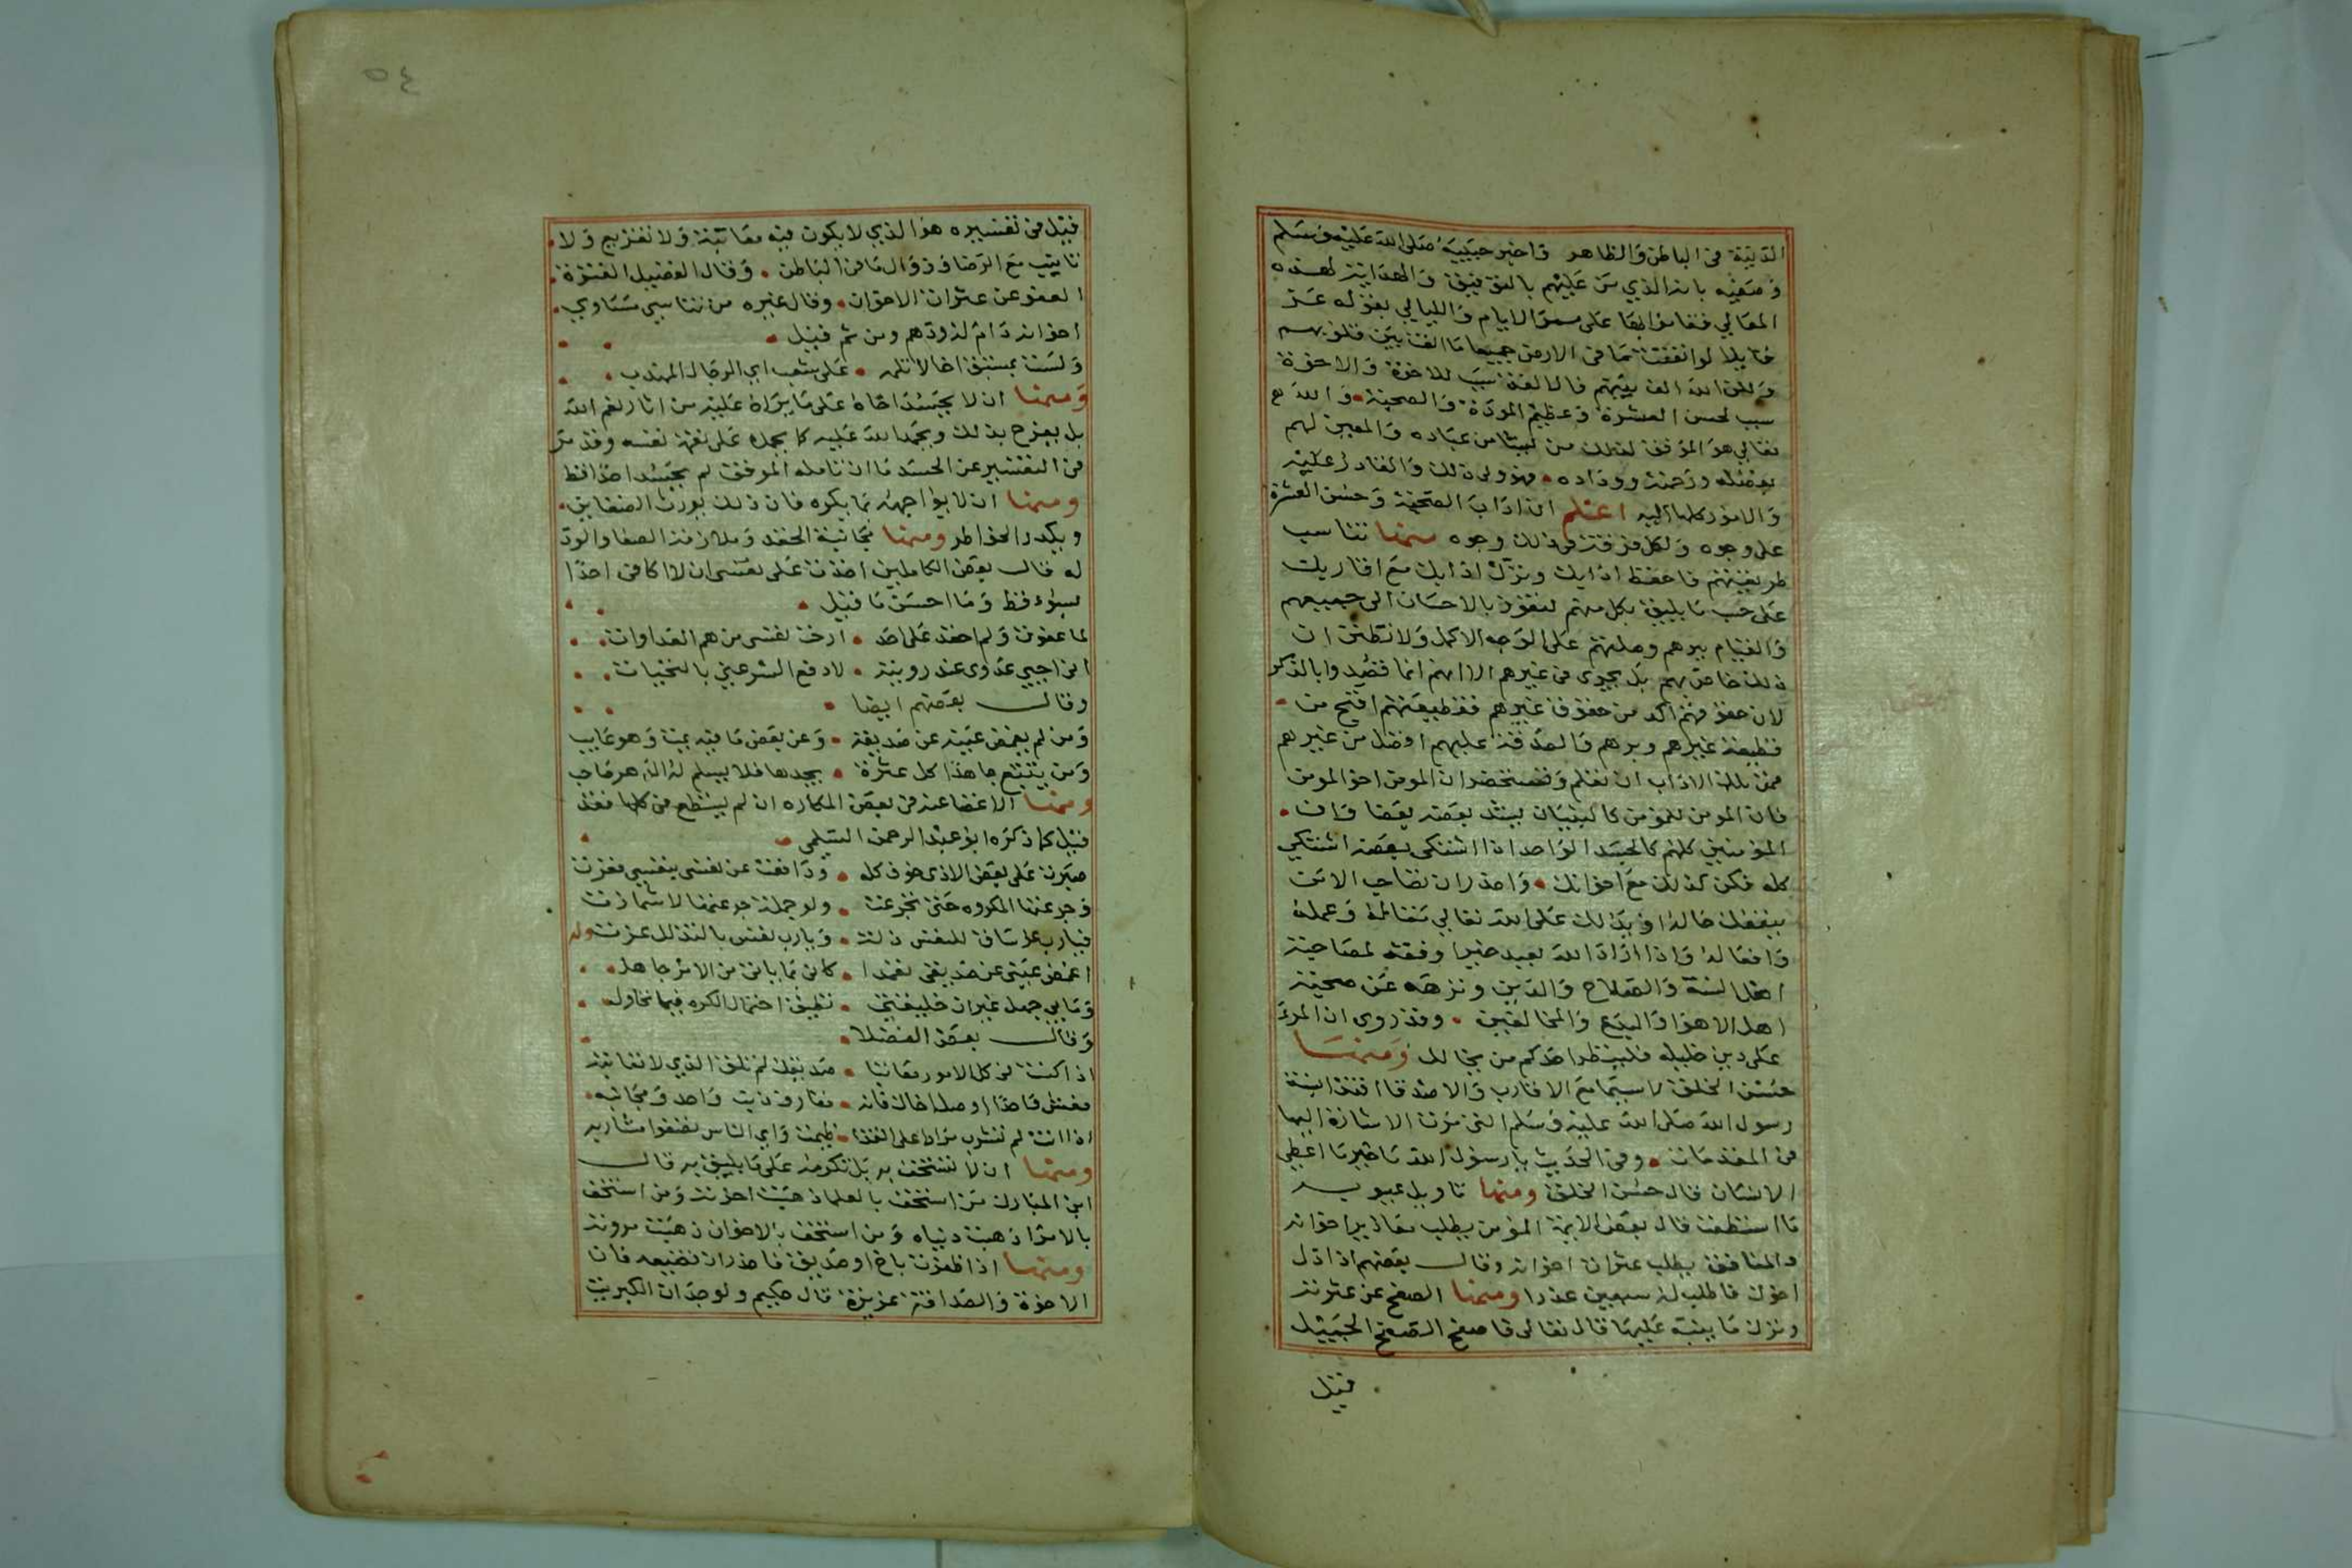 الدنية في الباطن والظاهر واخبر حبيبه صلى الله عليه وسلم
وصفيه بانه الذي من عليهم بالتوفيق والهداية لهذه
المعالي فقاموا بها على ممر الايام والليالي بقوله عز
قايلا لو انفقت ما في الارض جميعا ما الفت بين قلوبهم
ولكن الله الف بينهم فالالفة سبب للاخوة والاخوة
سبب لحسن العشرة وعظيم المودة والصحبة والله
تعالي هو الموفق لذلك من يشا من عباده والمعين لهم
بفضله ورحمته ووداده فهو ولي ذلك والقادر عليه
والامور كلها اليه اعلم ان اداب الصحبة وحسن العشرة
على وجوه ولكل فرقة في ذلك وجوه منها تناسب
طريقتهم فاحفظ ادابك ونزل ادابك مع اقاربك
على حسب ما يليق بكل منهم لتفوز بالاحسان الى جميعهم
والقيام ببرهم وصلتهم على الوجه الاكمل ولا تظنن ان
ذلك خاص بهم بل يجري في غيرهم الا انهم انما قصدوا بالذكر
لان حقوقهم اكد من حقوق غيرهم فقطيعتهم اقبح من
قطيعة غيرهم وبرهم والصدقة عليهم افضل من غيرهم
فمن تلك الاداب ان تعلم وتستحضر ان المومن اخو المومن
فان المومن للمومن كالبنيان يشد بعضه بعضا وان
المؤمنين كلهم كالجسد الواحد اذا اشتكى بعضه اشتكي
كله فكن كذلك مع اخوانك واحذر ان تصاحب الا من
ينفعك حاله او يدلك على الله تعالي مقاله وعمله
وافعاله واذا اراد الله بعبد خيرا وفقه لمصاحبة
اهل السنة والصلاح والدين ونزهه عن صحبة
اهل الاهوا والبدع والمخالفين وقد روي ان المرء
على دين خليله فلينظر احدكم من يخالل ومنها
حسن الخلق لا سيما مع الاقارب والاصدقا اقتدا بسنة
رسول الله صلى الله عليه وسلم التي مرت الاشارة اليها
في المقدمات وفي الحديث يا رسول الله ما خير ما اعطي
الانسان قال حسن الخلق ومنها تاويل عيوبه
ما استطعت قال بعض الايمة المؤمن يطلب معاذير اخوانه
والمنافق يطلب عثرات اخوانه وقال بعضهم اذا زل
اخوك فاطلب له سبعين عذرا ومنها الصفح عن عثرته
وترك تانيبه عليها قال تعالى فاصفح الصفح الجميل
قيل
٥٤
قيل في تفسيره هو الذي لا يكون فيه معاتبة ولا تقريع ولا
تانيب مع الرضا وزوال ما في الباطن وقال الفضيل الفتوة
العفو عن عثرات الاخوان وقال غيره من تناسي مساوي
اخوانه دام له ودهم ومن ثم قيل
ولست بمستبق اخا لا تلمه على شعث اي الرجال المهذب
ومنها ان لا يحسد اخاه على ما يراه عليه من اثار نعم الله
بل يفرح بذلك ويحمد الله عليه كما يحمده على نعمة نفسه وقد مر
في التفسير عن الحسد ما ان تامله الموفق لم يحسد احدا قط
ومنها ان لا يواجهه بما يكره فان ذلك يورث الضغاين
ويكدر الخواطر ومنها مجانبة الحقد وملازمة الصفا والود
له قال بعض الكاملين اخذت على نفسي ان لا اكافي احدا
بسوء قط وما احسن ما قيل
لما عفوت ولم احقد على احد ارحت نفسي من هم العداوات
اني احيي عدوي عند رويته لادفع الشر عني بالتحيات
وقال بعضهم ايضا
ومن لم يغمض عينه عن صديقه وعن بعض ما فيه يمت وهو عايب
ومن يتتبع جاهدا كل عثرة يجدها فلا يسلم له الدهر صاحب
ومنها الاغضا عنه في بعض المكاره ان لم يستطع في كلها فقد
قيل كما ذكره ابو عبد الرحمن السلمي
صبرت على بعض الاذى خوف كله ودافعت عن نفسي بنفسي فعزت
وجرعتها المكروه حتى تجرعت ولو جملة جرعتها لاشمازت
فيارب عز ساق للنفس ذلة ويارب نفس بالتذلل عزت وله
اغمض عيني عن صديقي تغمدا كاني بما ياتي من الامر جاهل
وما بي جهل غير ان خليقتي تطيق احتمال الكره فيما تحاول
وقال بعض الفضلا
اذا كنت في كل الامور معاتبا صديقك لم تلق الذي لا تعاتبه
فعش واحدا او صل اخاك فانه مقارف ذنب واحد ومجانبه
اذا انت لم تشرب مرارا على القذا ظمئت واي الناس تصفوا مشاربه
ومنها ان لا تستخف به بل تكرمه على ما يليق به قال
ابن المبارك من استخف بالعلما ذهبت اخرته ومن استخف
بالامرا ذهبت دنياه ومن استخف بالاخوان ذهبت مروته
ومنها اذا ظفرت باخ او صديق فاحذر ان تضيعه فان
الاخوة والصداقة عزيزة قال حكيم ولوجدان الكبريت